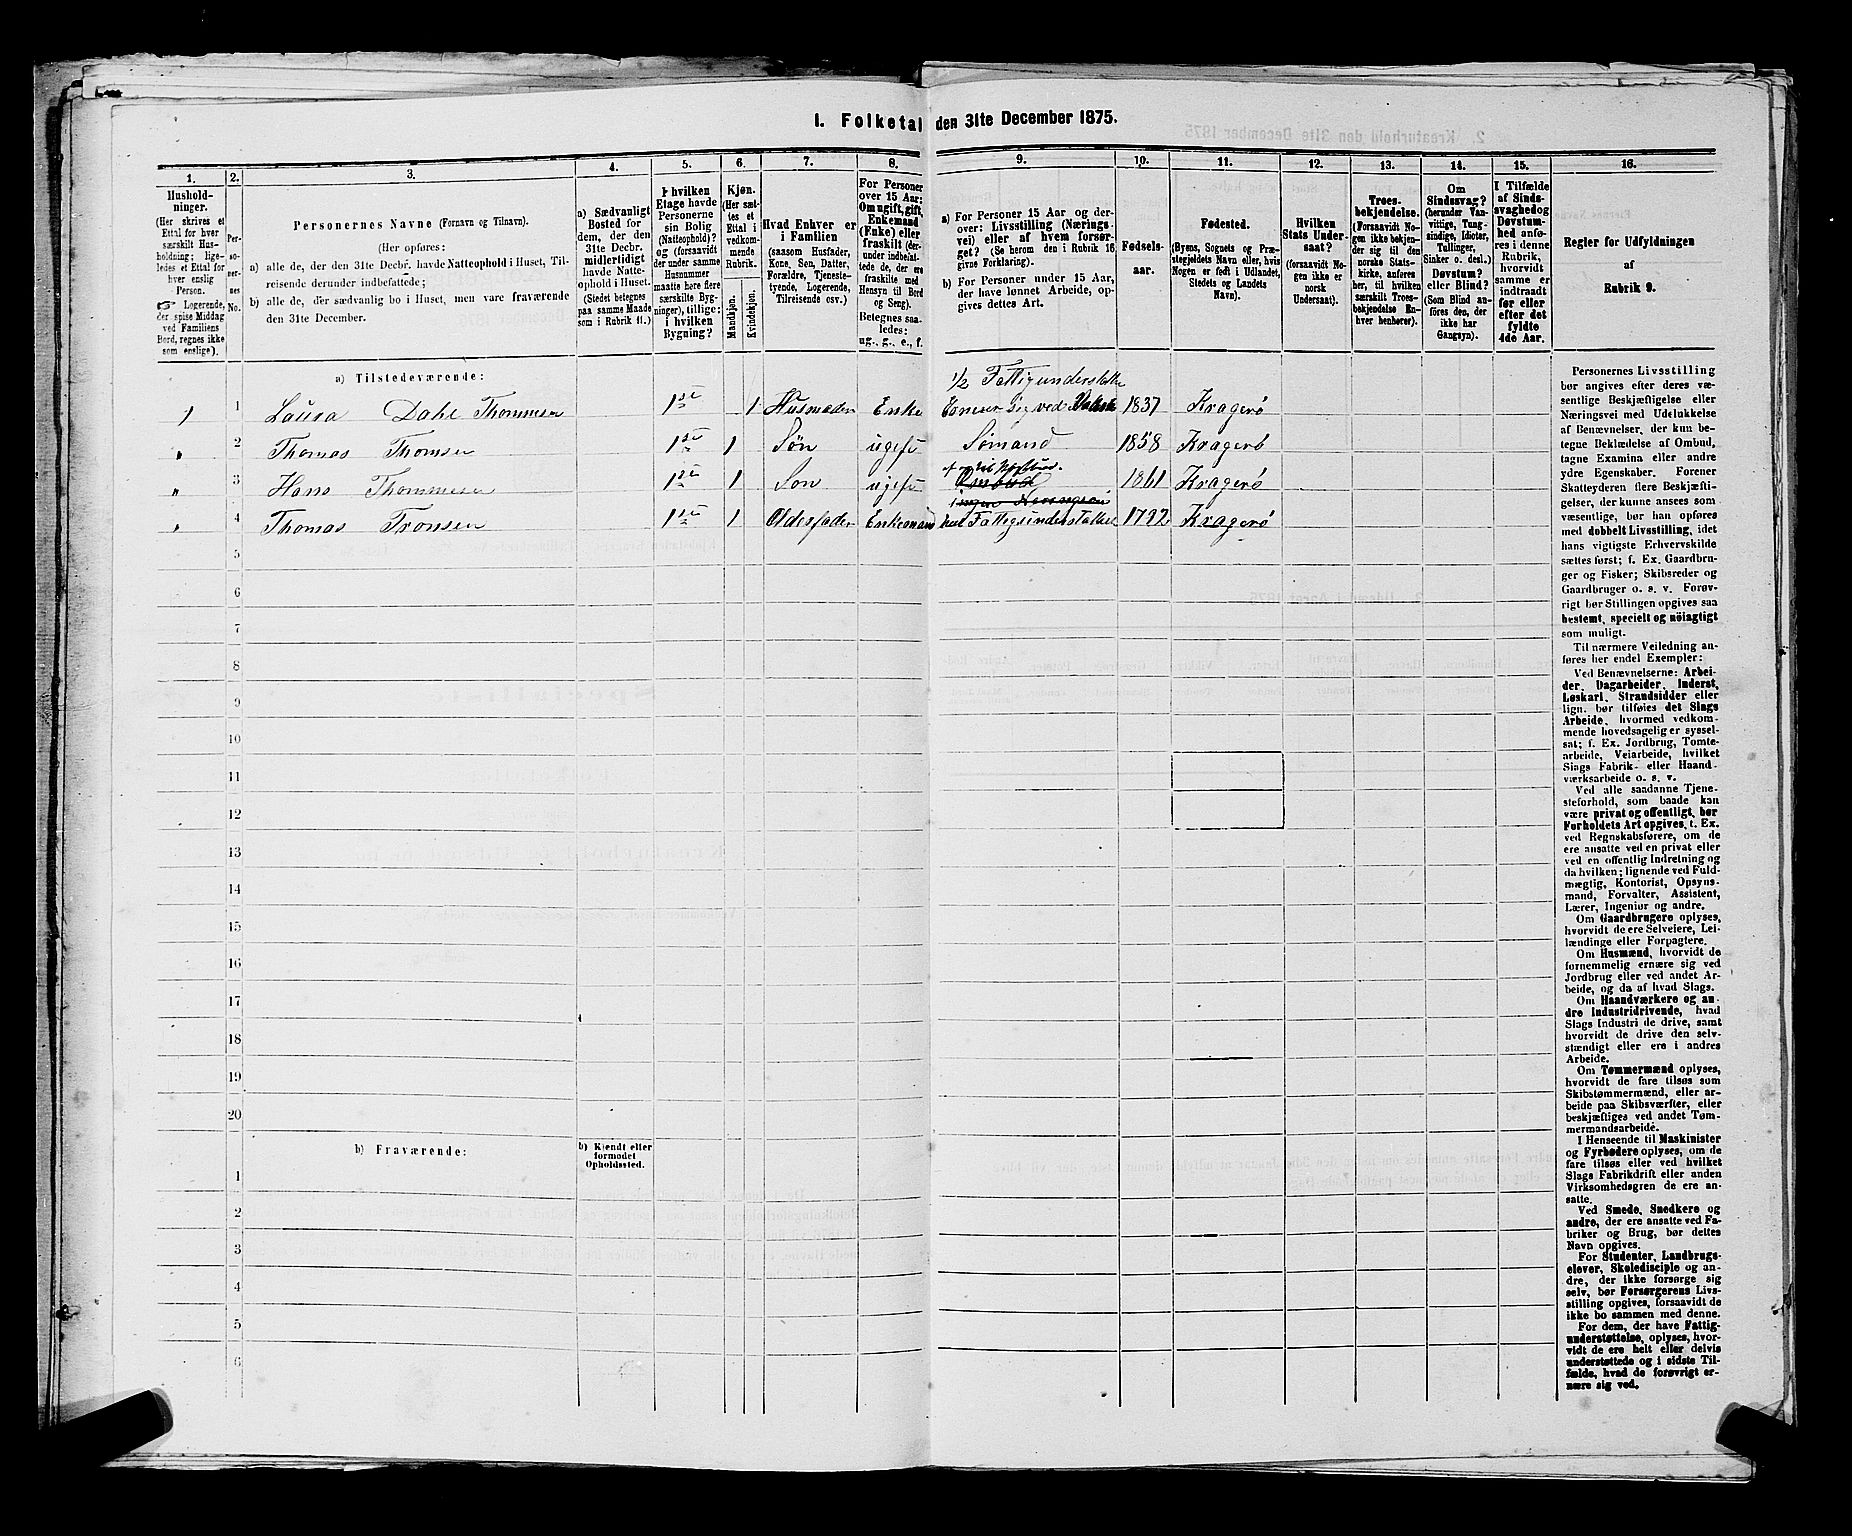 I. Folketal den 31te December 1875.
1. 2. 3. 4. 5. 6. 7. 8. 9. 10. 11. 12. 13. 14. 15. 16.
Hushold-
ninger.
(Her skrives et
Ettal for hver
særskilt Hus-
holdning; lige-
ledes et Ettal for
hver enslig
Person.
☞ Logerende,
der spise Middag
ved Familiens
Bord, regnes ikke
som enslige).
Per-
so-
ner-
nes
No.
Personernes Navne (Fornavn og Tilnavn).
(Her opføres:
a) alle de, der den 31te Decbr. havde Natteophold i Huset, Til-
reisende derunder indbefattede;
b) alle de, der sædvanlig bo i Huset, men vare fraværende
den 31te December.
a) Sædvanligt
Bosted for
dem, der den
31te Decbr.
midlertidigt
havde Natte-
ophold i Huset.
(Stedet betegnes
paa samme Maade
som i Rubrik 11.)
I hvilken
Etage havde
Personerne
sin Bolig
(Natteophold)?
og (forsaavidt
der under samme
Husnummer
maatte høre flere
særskilte Byg-
ninger), tillige:
i hvilken
Bygning?
Kjøn.
(Her sæt-
tes et
Ettal i
vedkom-
mende
Rubrik.
Mandkjøn.
Kvindekjøn.
Hvad Enhver er
i Familien
(saasom Husfader,
Kone, Søn, Datter,
Forældre, Tjeneste-
tyende, Logerende,
Tilreisende osv.)
For Personer
over 15 Aar:
Om ugift, gift,
Enkemand
(Enke) eller
fraskilt (der-
under indbefat-
tede de, der ere
fraskilte med
Hensyn til Bord
og Seng).
Betegnes saa-
ledes:
ug., g., e., f.
a) For Personer 15 Aar og der-
over: Livsstilling (Nærings-
vei) eller af hvem forsør-
get? (Se herom den i Rubrik 16
givne Forklaring).
b) For Personer under 15 Aar,
der have lønnet Arbeide, op-
gives dettes Art.
Fødsels-
aar.
Fødested.
(Byens, Sognets og Præ-
stegjeldets Navn eller, hvis
Nogen er født i Udlandet,
Stedets og Landets
Navn).
Hvilken
Stats Under-
saat?
(forsaavidt No-
gen ikke er
norsk
Undersaat).
Troes-
bekjendelse.
(Forsaavidt No-
gen ikke bekjen-
der sig til den
norske Stats-
kirke, anføres
her, til hvilken
særskilt Troes-
bekjendelse En-
hver henhører).
Om
Sindssvag?
(herunder Van-
vittige, Tung-
sindige, Idioter,
Tullinger,
Sinker o. desl.).
Døvstum?
eller Blind?
(Som Blind an-
føres den, der
ikke har
Gangsyn).
I Tilfælde
af Sinds-
svaghed og
Døvstum-
hed anfø-
res i denne
Rubrik,
hvorvidt
samme er
indtraadt
før eller
efter det
fyldte
4de Aar.
Regler for Udfyldningen
af
Rubrik 9.
a) Tilstedeværende:
1/2 Fattigunderstøtte
1 1 Laura Dahl Thommesen 1ste 1 Husmoder Enke 1837 Kragerø
" 2 Thomas Thomsen 1ste 1 Søn ugift Sømand 1858 Kragerø
" 3 Hans Thommesen 1ste 1 Søn ugift 1861 Kragerø
" 4 Thomas Tromsen 1ste 1 Oldefader Enkemand Fattigunderstøttet 1792 Kragerø
5
6
7
8
9
10
11
12
13
14
15
16
17
18
19
20
b) Fraværende:
b) Kjendt eller
formodet
Opholdssted.
1
2
3
4
5
6
Personernes Livsstilling
bør angives efter deres væ-
sentlige Beskjæftigelse eller
Næringsvei med Udelukkelse
af Benævnelser, der kun be-
tegne Beklædelse af Ombud,
tagne Examina eller andre
ydre Egenskaber. Forener
Skatteyderen flere Beskjæfti-
gelser, der kunne ansees som
væsentlige, bør han opføres
med dobbelt Livsstilling, idet
hans vigtigste Erhvervskilde
sættes først; f. Ex. Gaardbru-
ger og Fisker; Skibsreder og
Gaardbruger o. s. v. Forøv-
rigt bør Stillingen opgives saa
bestemt, specielt og nøiagtigt
som muligt.
Til nærmere Veiledning an-
føres her endel Exempler:
Ved Benævnelserne: Arbei-
der, Dagarbeider, Inderst,
Løskarl, Strandsidder eller
lign. bør tilføies det Slags
Arbeide, hvormed vedkom-
mende hovedsagelig er syssel-
sat; f. Ex. Jordbrug, Tomte-
arbeide, Veiarbeide, hvilket
Slags Fabrik- eller Haand-
værksarbeide o. s. v.
Ved alle saadanne Tjene-
steforhold, som baade kan
være privat og offentligt, bør
Forholdets Art opgives, t. Ex.
ved Regnskabsførere, om de
ere ansatte ved en privat eller
ved en offentlig Indretning og
da hvilken; lignende ved Fuld-
mægtig, Kontorist, Opsyns-
mand, Forvalter, Assistent,
Lærer, Ingeniør og andre.
Om Gaardbrugere oplyses,
hvorvidt de ere Selveiere, Lei-
lændinge eller Forpagtere.
Om Husmænd, hvorvidt de
fornemmelig ernære sig ved
Jordbrug eller ved andet Ar-
beide, og da af hvad Slags.
Om Haandværkere og an-
dre Industridrivende, hvad
Slags Industri de drive, samt
hvorvidt de drive den selv-
stændigt eller ere i andres
Arbeide.
Om Tømmermænd oplyses,
hvorvidt de fare tilsøs som
Skibstømmermænd, eller ar-
beide paa Skibsværfter, eller
beskjæftiges ved andet Tøm-
mermandsarbeide.
I Henseende til Maskinister
og Fyrbødere oplyses, om de
fare tilsøs eller ved hvilket
Slags Fabrikdrift eller anden
Virksomhedsgren de ere an-
satte.
Ved Smede, Snedkere og
andre, der ere ansatte ved Fa-
briker og Brug, bør dettes
Navn opgives.
For Studenter, Landbrugs-
elever, Skoledisciple og an-
dre, der ikke forsørge sig
selv, bør Forsørgerens Livs-
stilling opgives, forsaavidt de
ikke bo sammen med denne.
For dem, der have Fattig-
understøttelse, oplyses, hvor-
vidt de ere helt eller delvis
understøttede og i sidste Til-
fælde, hvad de forøvrigt er-
nære sig ved.